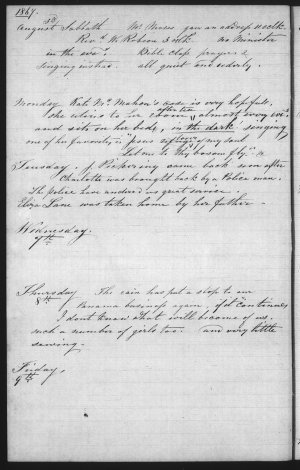 1867.
August Sabbath Mr Nivens gave an address 11 oclk.
Revd W. Robson 3 oclk. no Minister
in the eve'g. Bible Class prayer &
singing instead. all quiet and orderly.
Monday Kate McMahon's case is very hopeful,
she clings to her room after tea almost every eve'g
and sits on her bed, in the dark singing
one of her favorites, is "Jesus refuge of my soul
Let me to thy bosom fly" &
Tuesday. J. Pickering came back soon after
Charlotte was brought back by a Police man.
The Police have rendered us great service.
Eliza Lane was taken home by her father
Wednesday.
7th
Thursday The rain has put a stop to our
8th Panama business again, if it continues
I dont know what will become of us.
such a number of girls too. and very little
sewing.
Friday,
9th